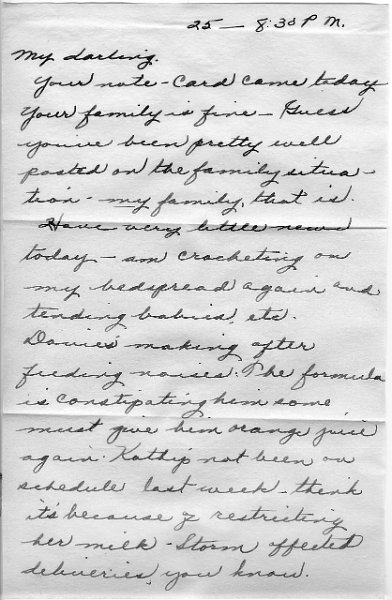 25 — 8:30 P.M.
My darling.
Your note-card came today
Your family is fine - Guess
you've been pretty well
posted on the family situa-
tion - my family, that is.
Have very little news
today - am crocheting on
my bedspread again and
tending babies, etc.
Davie's making after
feeding noises. The formula
is constipating him some,
must give him orange juice
again. Kathy's not been on
schedule last week - think
it's because of restricting
her milk - Storm affected
deliveries, you know.